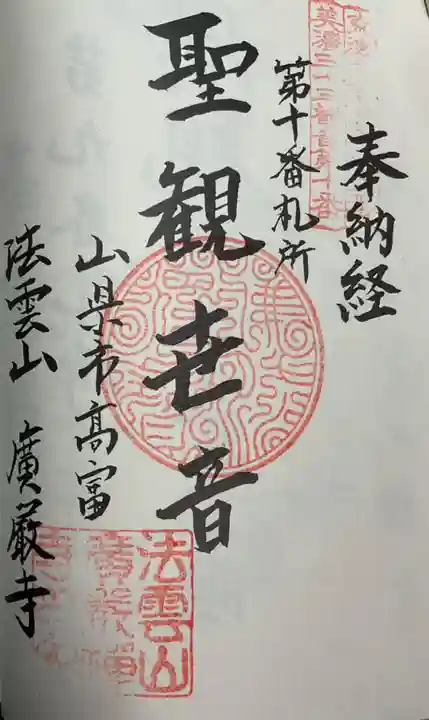 奉納経
美濃三十三番第十番
第十番札所
聖観世音
山県市高富
法雲山 廣厳寺
法雲山
廣厳禅